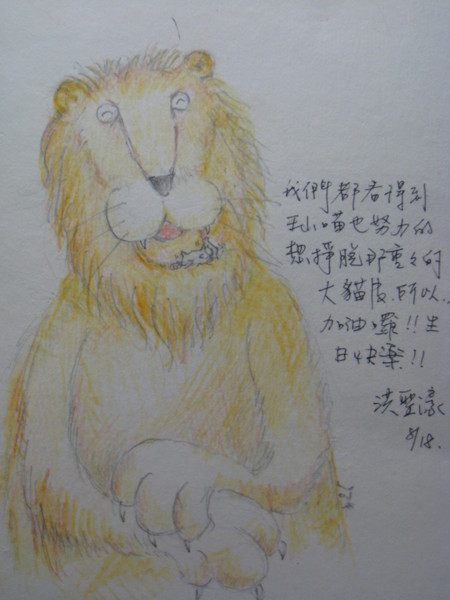 我們都看得到
王小喵也努力的
想掙脫那重々的
大貓皮.所以..
加油囉!!生
日快樂!!
洪聖濠
8/18.